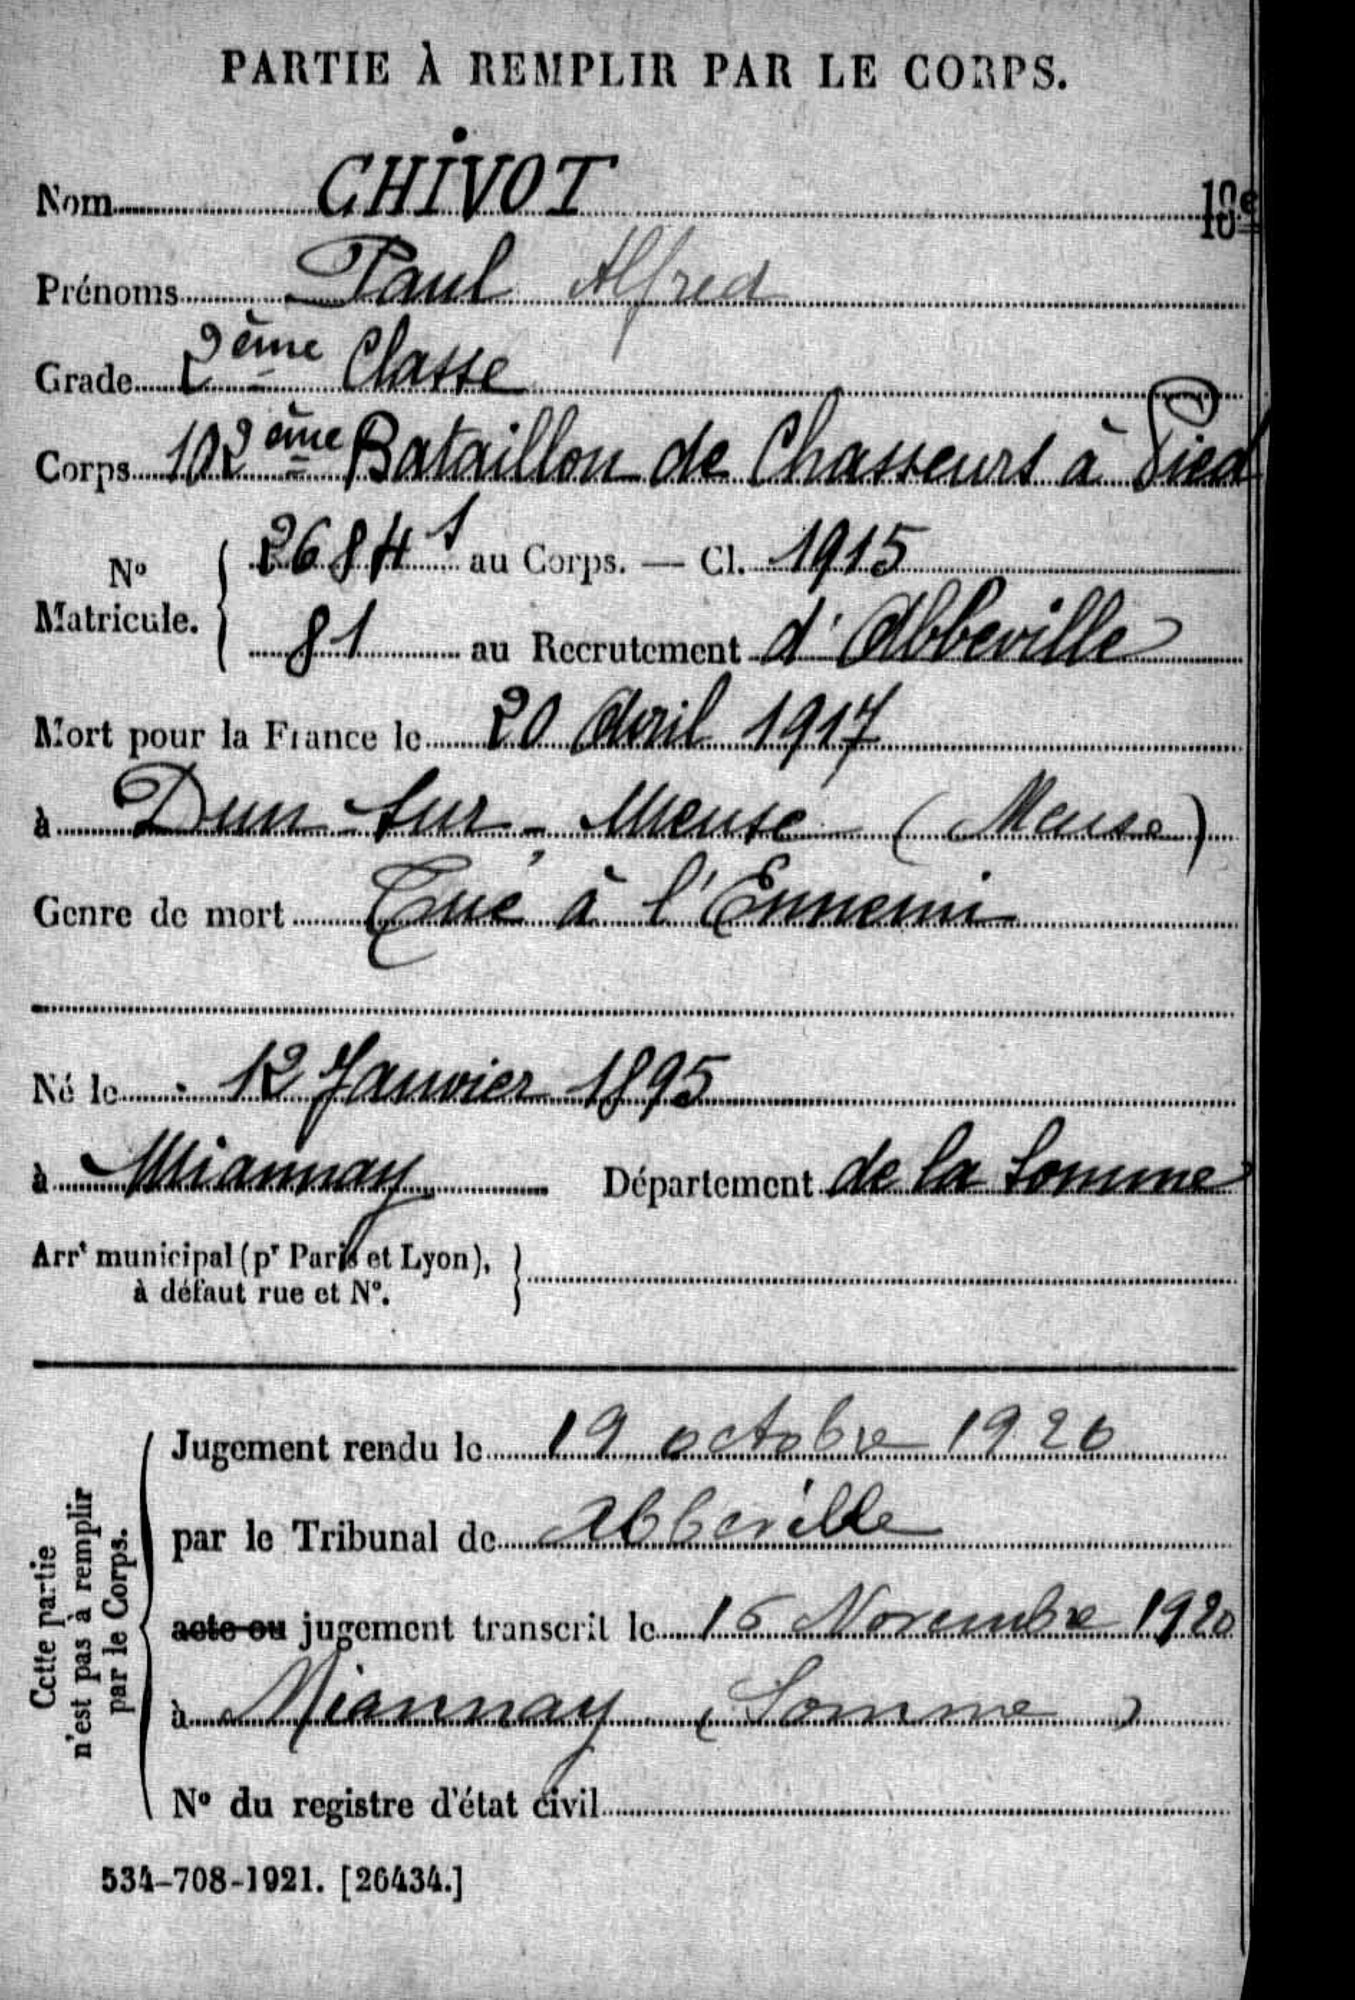 PARTIE À REMPLIR PAR LE CORPS.
Nom CHIVOT
Prénoms Paul Alfred
Grade 2ème Classe
Corps 102ème Bataillon de Chasseurs à Pied
No Matricule. { 2684 au Corps. — Cl. 1915
81 au Recrutement d'Abbeville
Mort pour la France le 20 Avril 1917
à Dun-sur-Meuse (Meuse)
Genre de mort Tué à l'Ennemi
Né le 12 Janvier 1895
à Miannay Département de la Somme
Arrt municipal (pr Paris et Lyon), }
à défaut rue et No.
Cette partie
n'est pas à remplir
par le Corps.
Jugement rendu le 19 octobre 1920
par le Tribunal de Abbeville
acte ou jugement transcrit le 16 Novembre 1920
à Miannay (Somme)
No du registre d'état civil
534-708-1921. [26434.]